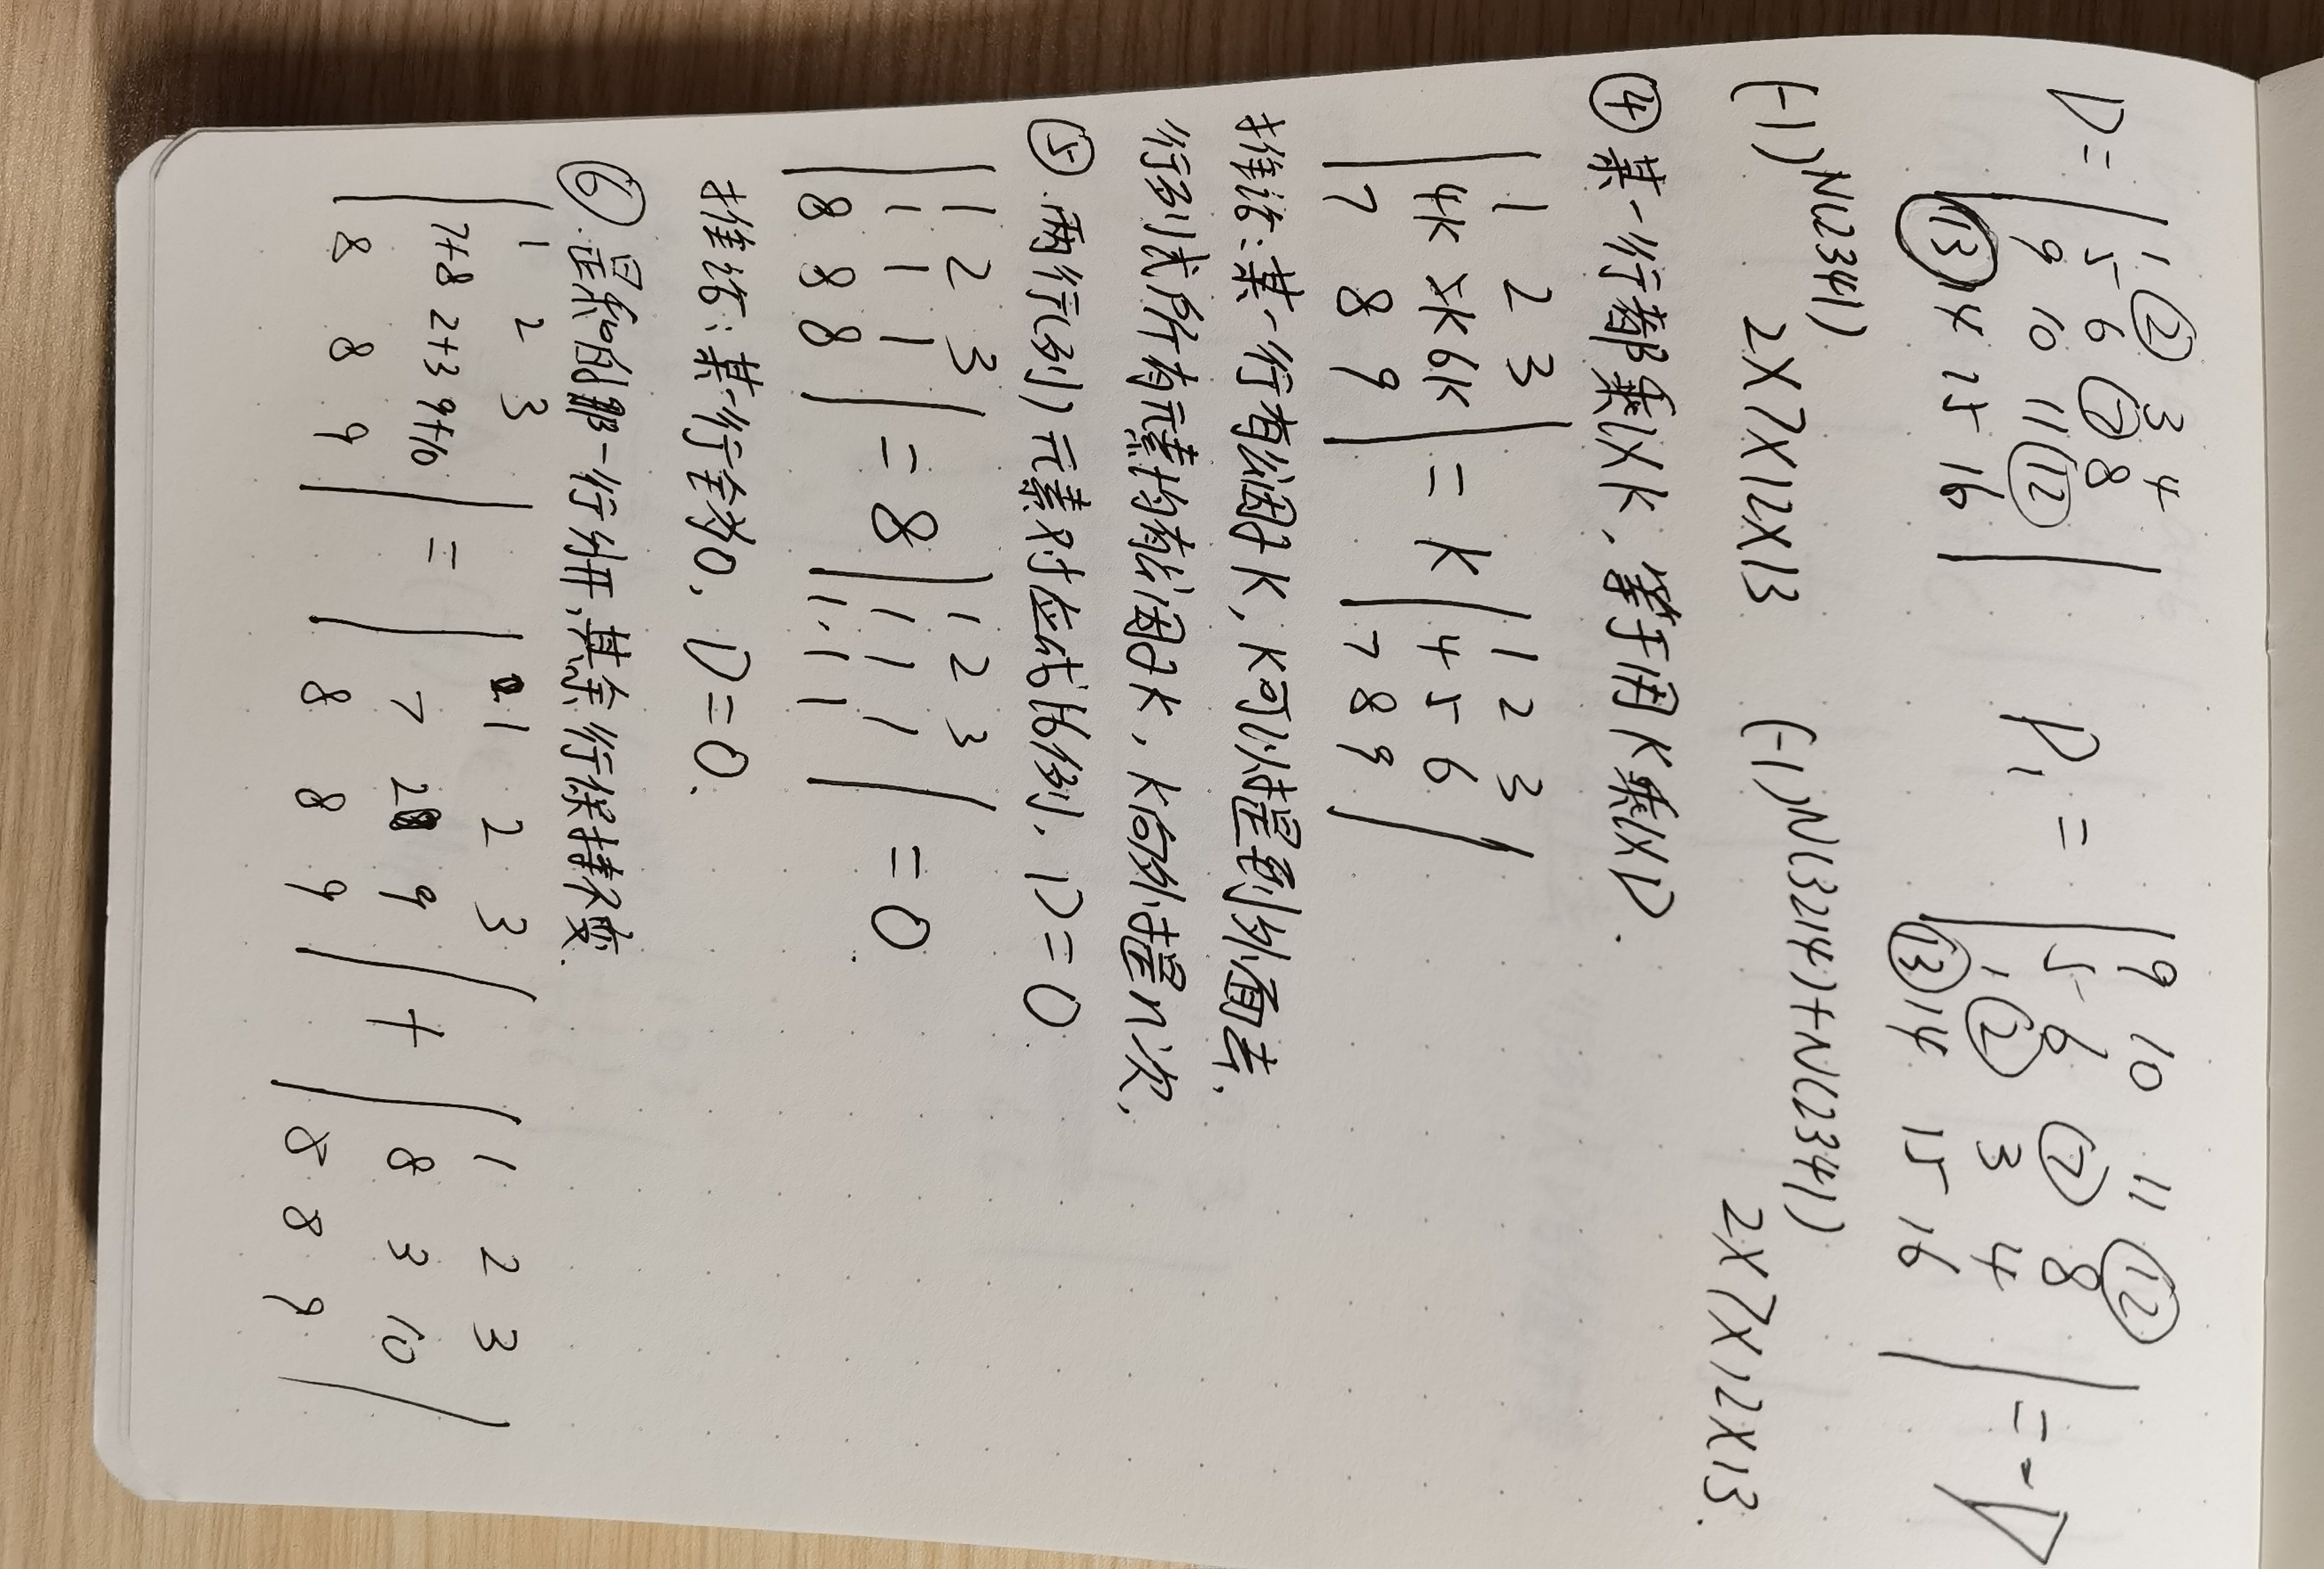 D = | 1 ② 3 4 | D₁ = | 9 10 11 ⑫ | = -D
| 5 6 ⑦ 8 | | 5 6 ⑦ 8 |
| 9 10 11 ⑫ | | 1 ② 3 4 |
| ⑬ 14 15 16 | | ⑬ 14 15 16 |
(-1)^N(2341) 2×7×12×13 (-1)^N(3214)+N(2341) 2×7×12×13.
④ 某一行都乘以k, 等于用k乘以D.
| 1 2 3 | | 1 2 3 |
| 4k 5k 6k | = k | 4 5 6 |
| 7 8 9 | | 7 8 9 |
推论: 某一行有公因子k, k可以提到外面去.
行列式所有元素均有公因子k, k向外提n次.
⑤. 两行(列)元素对应成比例, D=0
| 1 2 3 | | 1 2 3 |
| 1 1 1 | = 8 | 1 1 1 | = 0.
| 8 8 8 | | 1 1 1 |
推论: 某一行全为0, D=0.
⑥. 是和的那一行分开, 其余行保持不变.
| 1 2 3 | | 1 2 3 | | 1 2 3 |
| 7+8 2+3 9+10 | = | 7 2 9 | + | 8 3 10 |
| 8 8 9 | | 8 8 9 | | 8 8 9 |